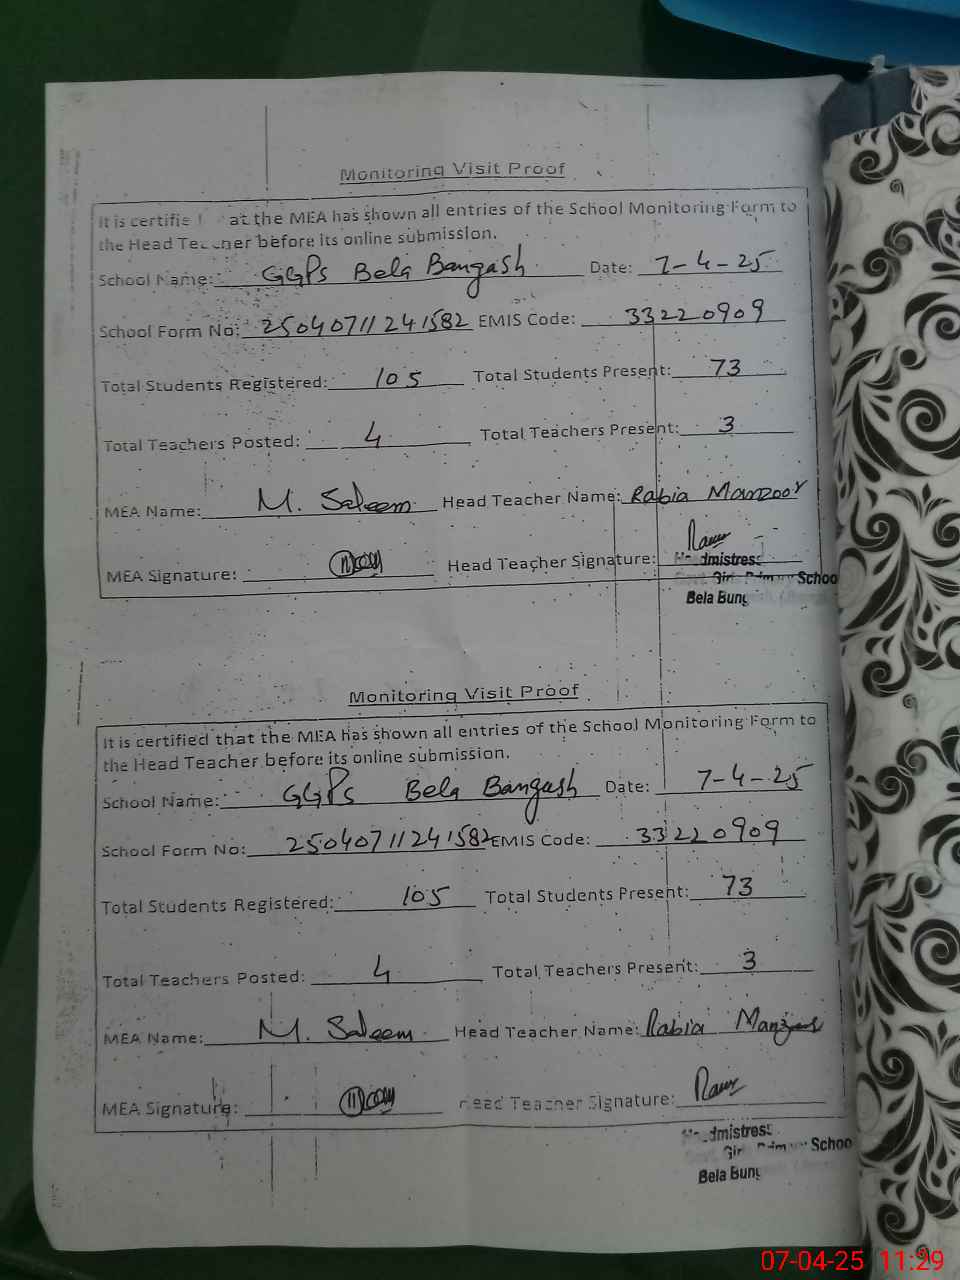 Monitoring Visit Proof
It is certifie at the MEA has shown all entries of the School Monitoring Form to
the Head Teacher before its online submission.
School Name: GGPS Bela Bangash Date: 7-4-25
School Form No: 25040711241582 EMIS Code: 33220909
Total Students Registered: 105 Total Students Present: 73
Total Teachers Posted: 4 Total Teachers Present: 3
MEA Name: M. Saleem Head Teacher Name: Rabia Manzoor
MEA Signature: Head Teacher Signature:
Headmistress
Govt. Girls Primary Schoo
Bela Bung
Monitoring Visit Proof
It is certified that the MEA has shown all entries of the School Monitoring Form to
the Head Teacher before its online submission.
School Name: GGPS Bela Bangash Date: 7-4-25
School Form No: 25040711241582 EMIS Code: 33220909
Total Students Registered: 105 Total Students Present: 73
Total Teachers Posted: 4 Total Teachers Present: 3
MEA Name: M. Saleem Head Teacher Name: Rabia Manzoor
MEA Signature: Head Teacher Signature:
Headmistress
Govt. Girls Primary Schoo
Bela Bung
07-04-25 11:29